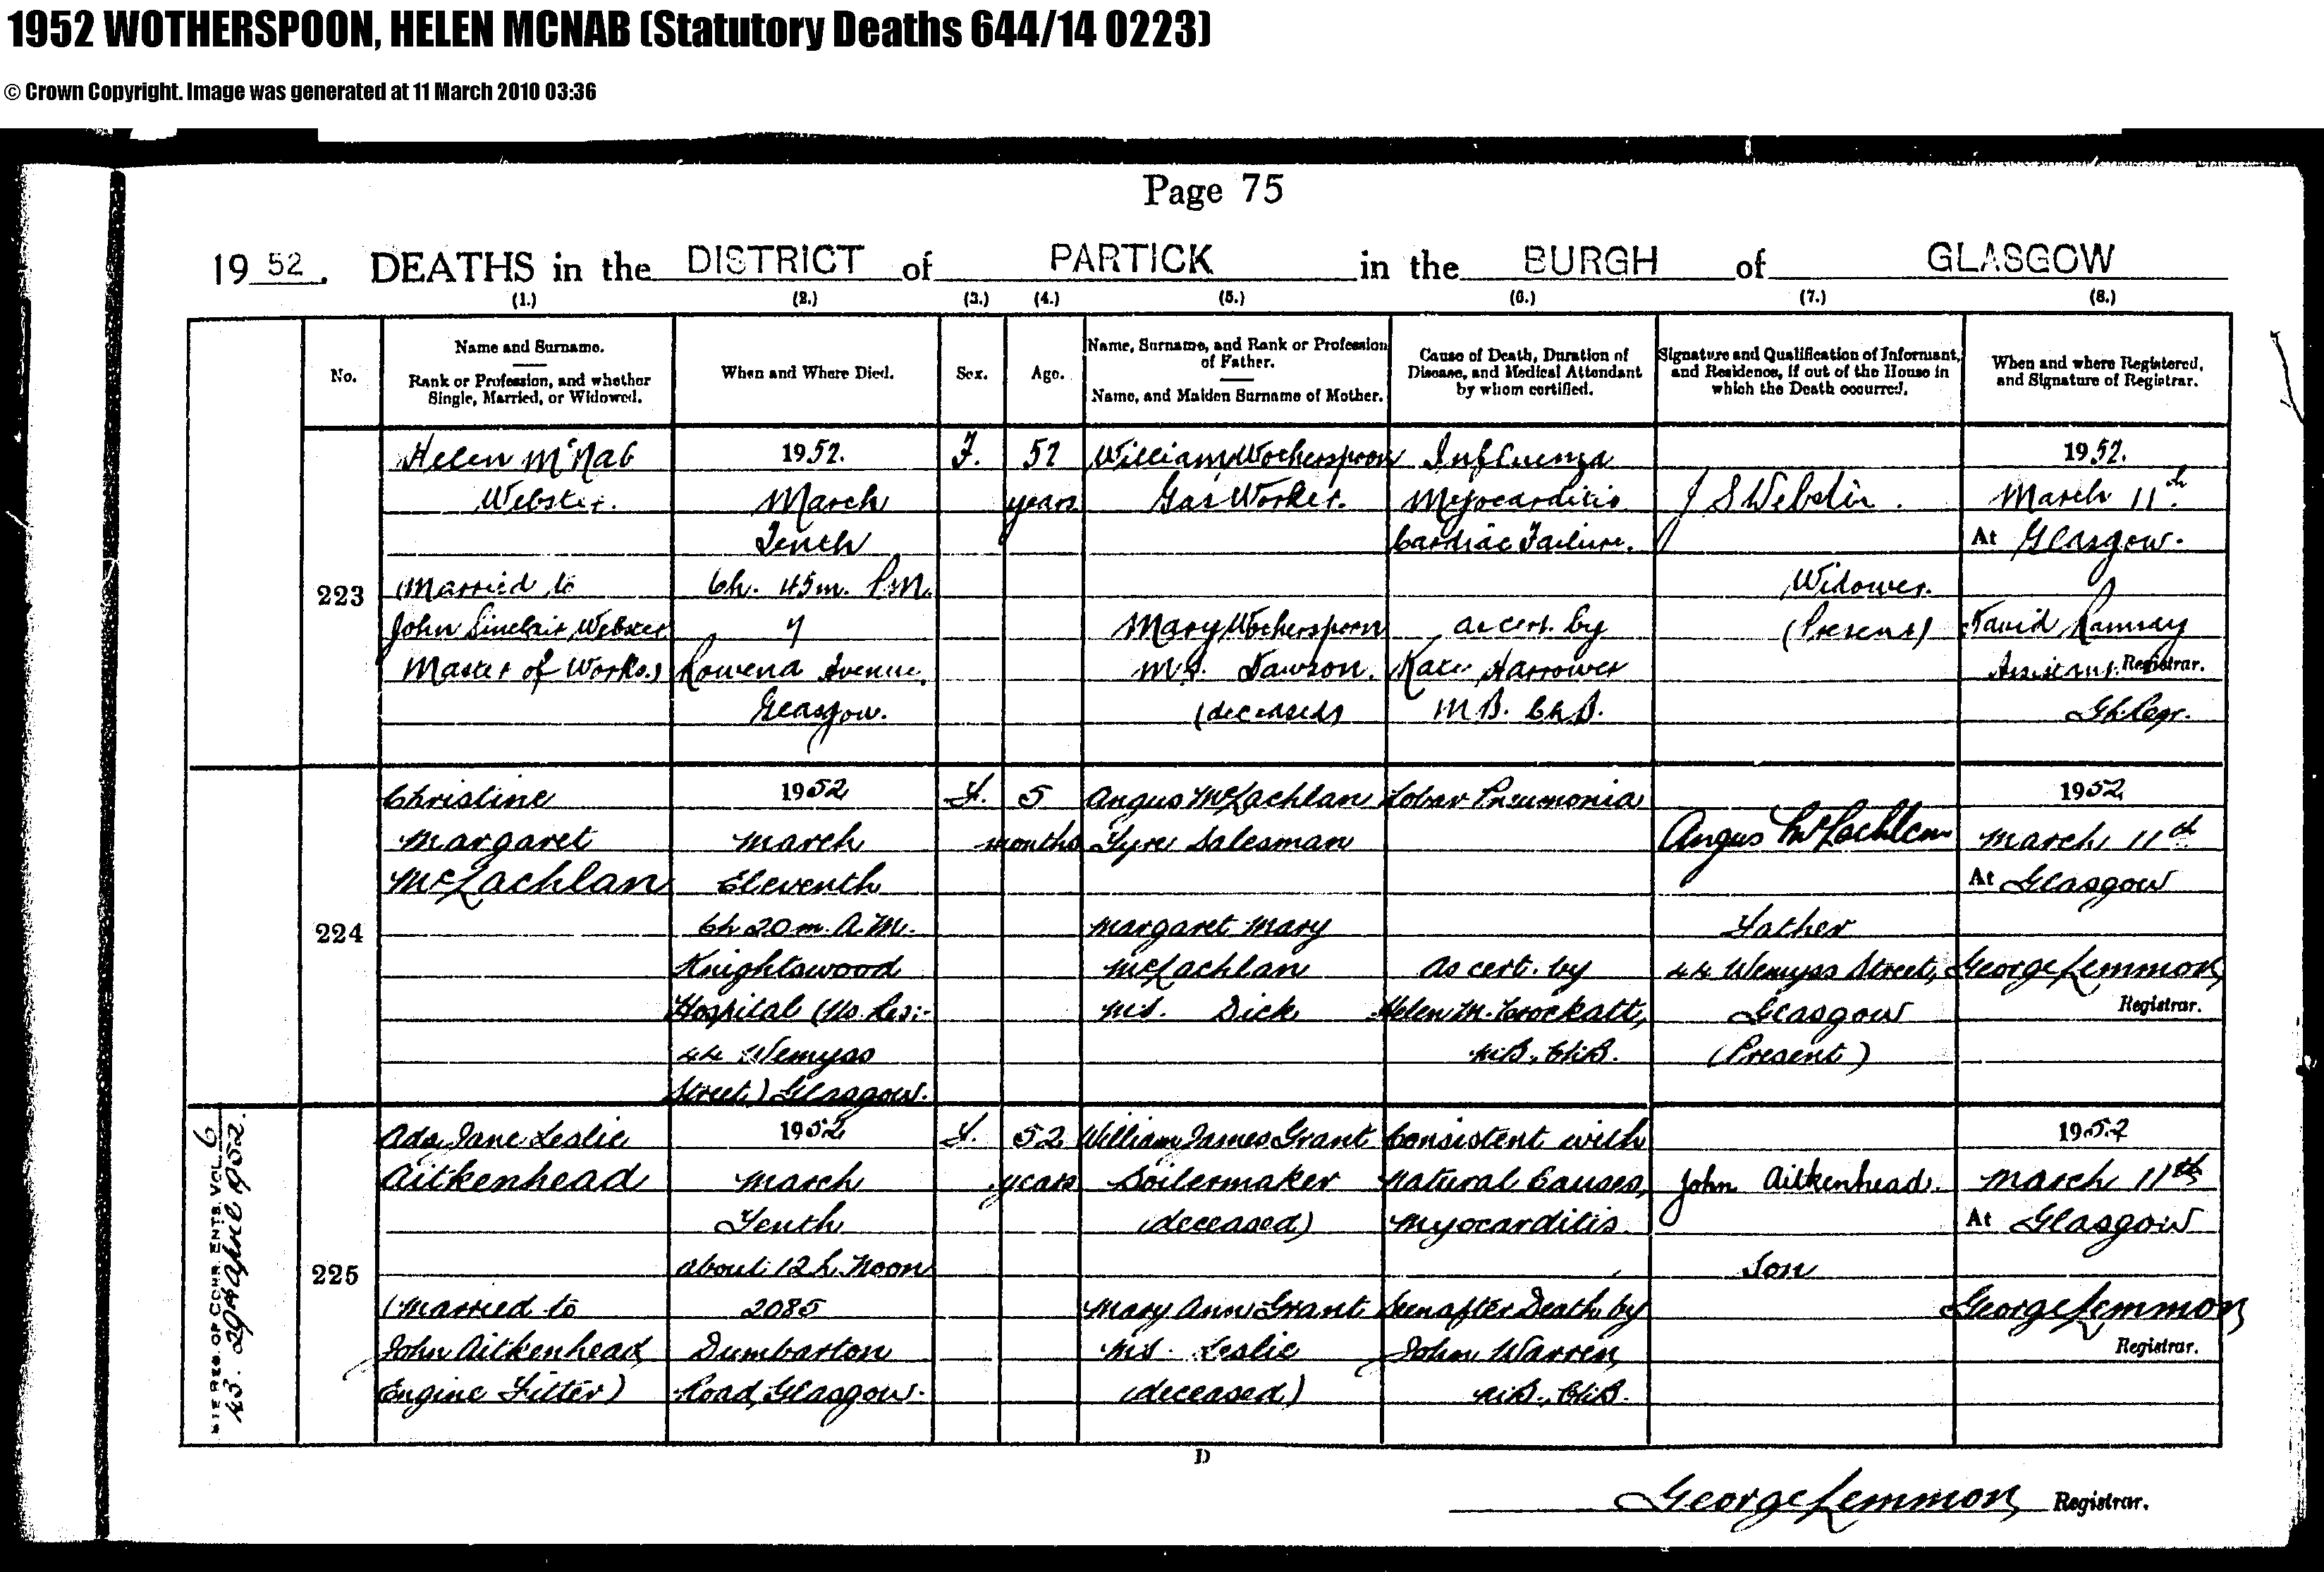 1952 WOTHERSPOON, HELEN MCNAB (Statutory Deaths 644/14 0223)
© Crown Copyright. Image was generated at 11 March 2010 03:36
Page 75
1952. DEATHS in the DISTRICT of PARTICK in the BURGH of GLASGOW
(1.) (2.) (3.) (4.) (5.) (6.) (7.) (8.)
No.
Name and Surname.
Rank or Profession, and whether
Single, Married, or Widowed.
When and Where Died.
Sex.
Age.
Name, Surname, and Rank or Profession
of Father.
Name, and Maiden Surname of Mother.
Cause of Death, Duration of
Disease, and Medical Attendant
by whom certified.
Signature and Qualification of Informant,
and Residence, if out of the House in
which the Death occurred.
When and where Registered,
and Signature of Registrar.
223
Helen McNab
Webster.
(Married to
John Sinclair Webster
Master of Works.)
1952.
March
Tenth
6h. 45m. P.M.
7
Rowena Avenue,
Glasgow.
F.
57
years
William Wotherspoon
Gas Worker.
Mary Wotherspoon
M.S. Dawson.
(deceased)
Influenza
Myocarditis
Cardiac Failure.
as cert. by
Kate Harrower
M.B. Ch.B.
J S Webster.
Widower.
(Present)
1952.
March 11th.
At Glasgow.
David Ramsay
Assistant Registrar.
224
Christine
Margaret
McLachlan
1952
March
Eleventh
6h 20m. A.M.
Knightswood
Hospital (Us. Res:-
44 Wemyss
Street) Glasgow.
F.
5
months
Angus McLachlan
Tyre Salesman
Margaret Mary
McLachlan
M.S. Dick
Lobar Pneumonia
As cert. by
Helen M. Crockatt,
M.B., Ch.B.
Angus McLachlan
Father
44 Wemyss Street,
Glasgow
(Present)
1952
March 11th
At Glasgow
George Lemmon,
Registrar.
225
Ada Jane Leslie
Aitkenhead
(Married to
John Aitkenhead
Engine Fitter)
1952
March
Tenth
about 12 h. Noon
2085
Dumbarton
Road, Glasgow.
F.
52
years
William James Grant
Boilermaker
(deceased)
Mary Ann Grant
M.S. Leslie
(deceased)
Consistent with
Natural Causes,
Myocarditis
Seen after Death by
John Warren,
M.B., Ch.B.
John Aitkenhead.
Son
1952
March 11th
At Glasgow
George Lemmon,
Registrar.
43. 29th April 1952.
D
George Lemmon, Registrar.